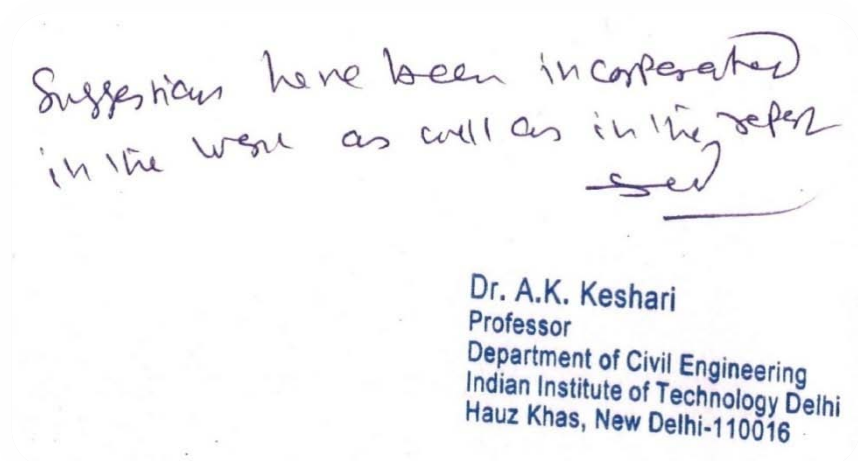 Suggestions have been incorporated
in the work as well as in the report
Dr. A.K. Keshari
Professor
Department of Civil Engineering
Indian Institute of Technology Delhi
Hauz Khas, New Delhi-110016